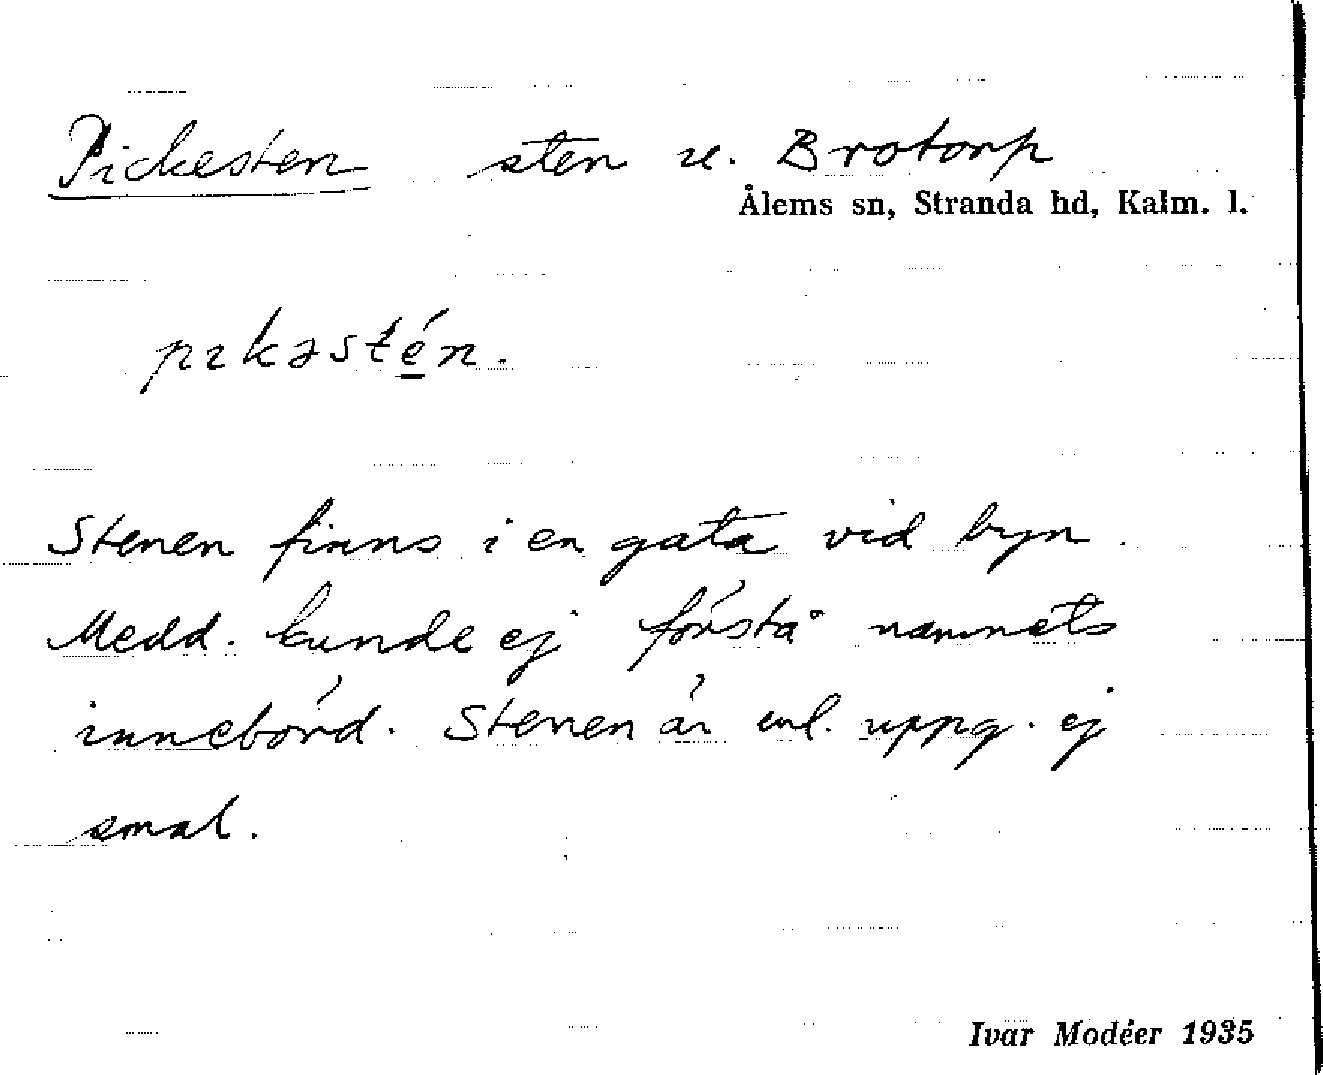 Pickesten sten u. Brotorp
Ålems sn, Stranda hd, Kalm. l.
pıkəstén.
Stenen finns i en gata vid byn.
Medd. kunde ej förstå namnets
innebörd. Stenen är enl. uppg. ej
smal.
Ivar Modéer 1935